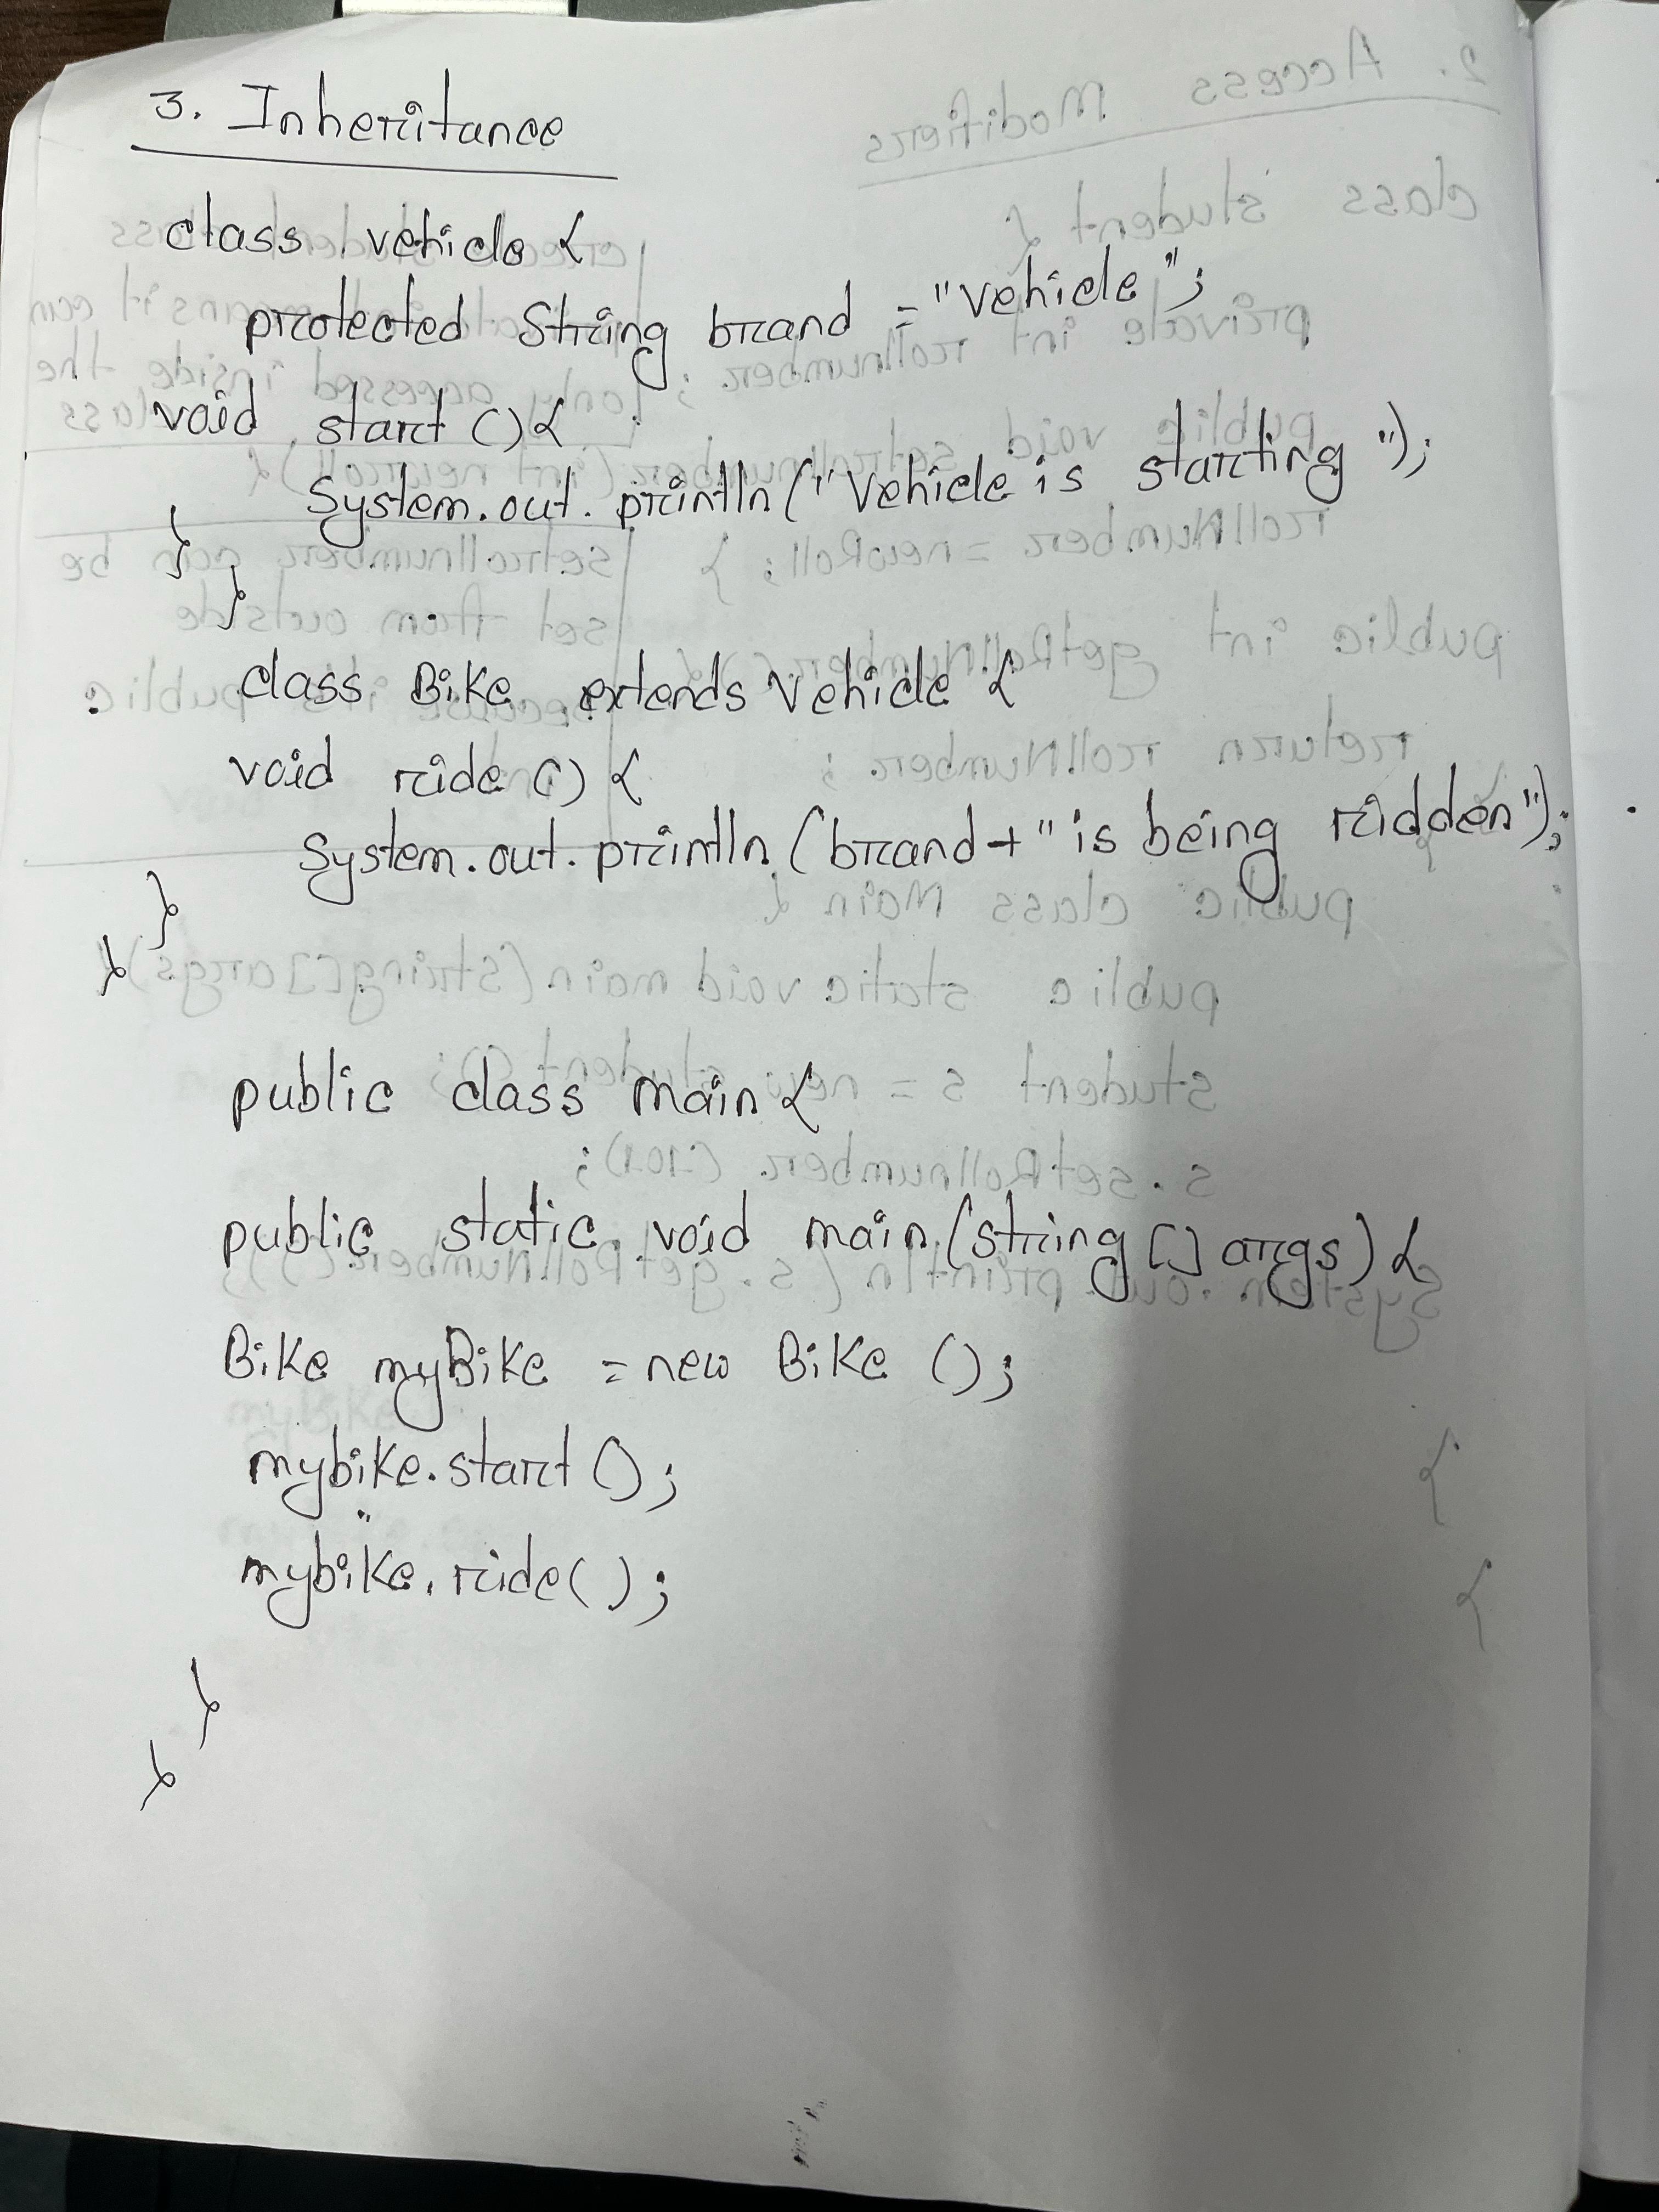 3. Inheritance
class vehicle {
protected String brand = "vehicle";
void start () {
System.out.println("Vehicle is starting ");
}
}
class Bike extends Vehicle {
void ride () {
System.out.println (brand + " is being ridden");
}
}
public class main {
public static void main (string [] args) {
Bike myBike = new Bike ();
mybike.start ();
mybike.ride ();
}
}